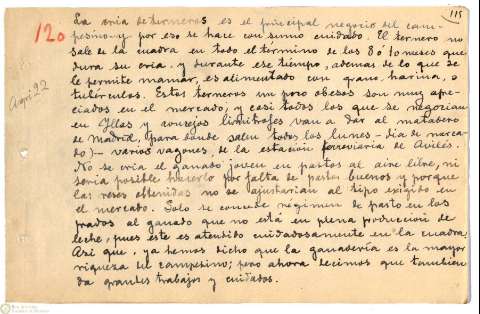 115
120
Agri 22
La cría de terneros es el principal negocio del cam-
pesino y por eso se hace con sumo cuidado. El ternero no
sale de la cuadra en todo el término de los 8 ó 10 meses que
dura su cría, y durante ese tiempo, además de lo que se
le permite mamar, es alimentado con grano, harina, o
tubérculos. Estos terneros un poco obesos son muy apre-
ciados en el mercado; y casi todos los que se negocian
en Illas y concejos limítrofes van a dar al matadero
de Madrid, (para donde salen todos los lunes - día de merca-
do) - varios vagones de la estación ferroviaria de Avilés.
No se cría el ganado joven en pastos al aire libre, ni
sería posible hacerlo por falta de pastos buenos y porque
las reses obtenidas no se ajustarían al tipo exigido en
el mercado. Solo se concede régimen de pasto en los
prados al ganado que no está en plena producción de
leche, pues este es atendido cuidadosamente en la cuadra.
Así que, ya hemos dicho que la ganadería es la mayor
riqueza del campesino; pero ahora decimos que también
da grandes trabajos y cuidados.